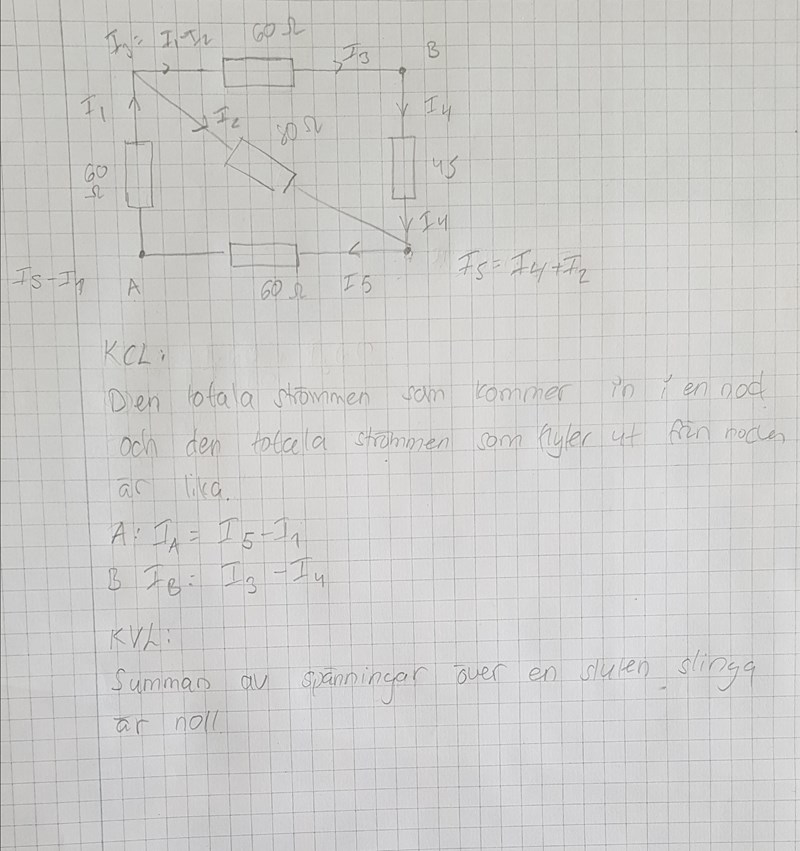 I3 = I1-I2
60 Ω
I3
B
I1
I2
80 Ω
I4
60
Ω
45
I4
I5-I1
A
60 Ω
I5
I5 = I4+I2
KCL:
Den totala strömmen som kommer in i en nod
och den totala strömmen som flyter ut från noden
är lika.
A: IA = I5-I1
B IB: I3 -I4
KVL:
Summan av spänningar över en sluten slinga
är noll